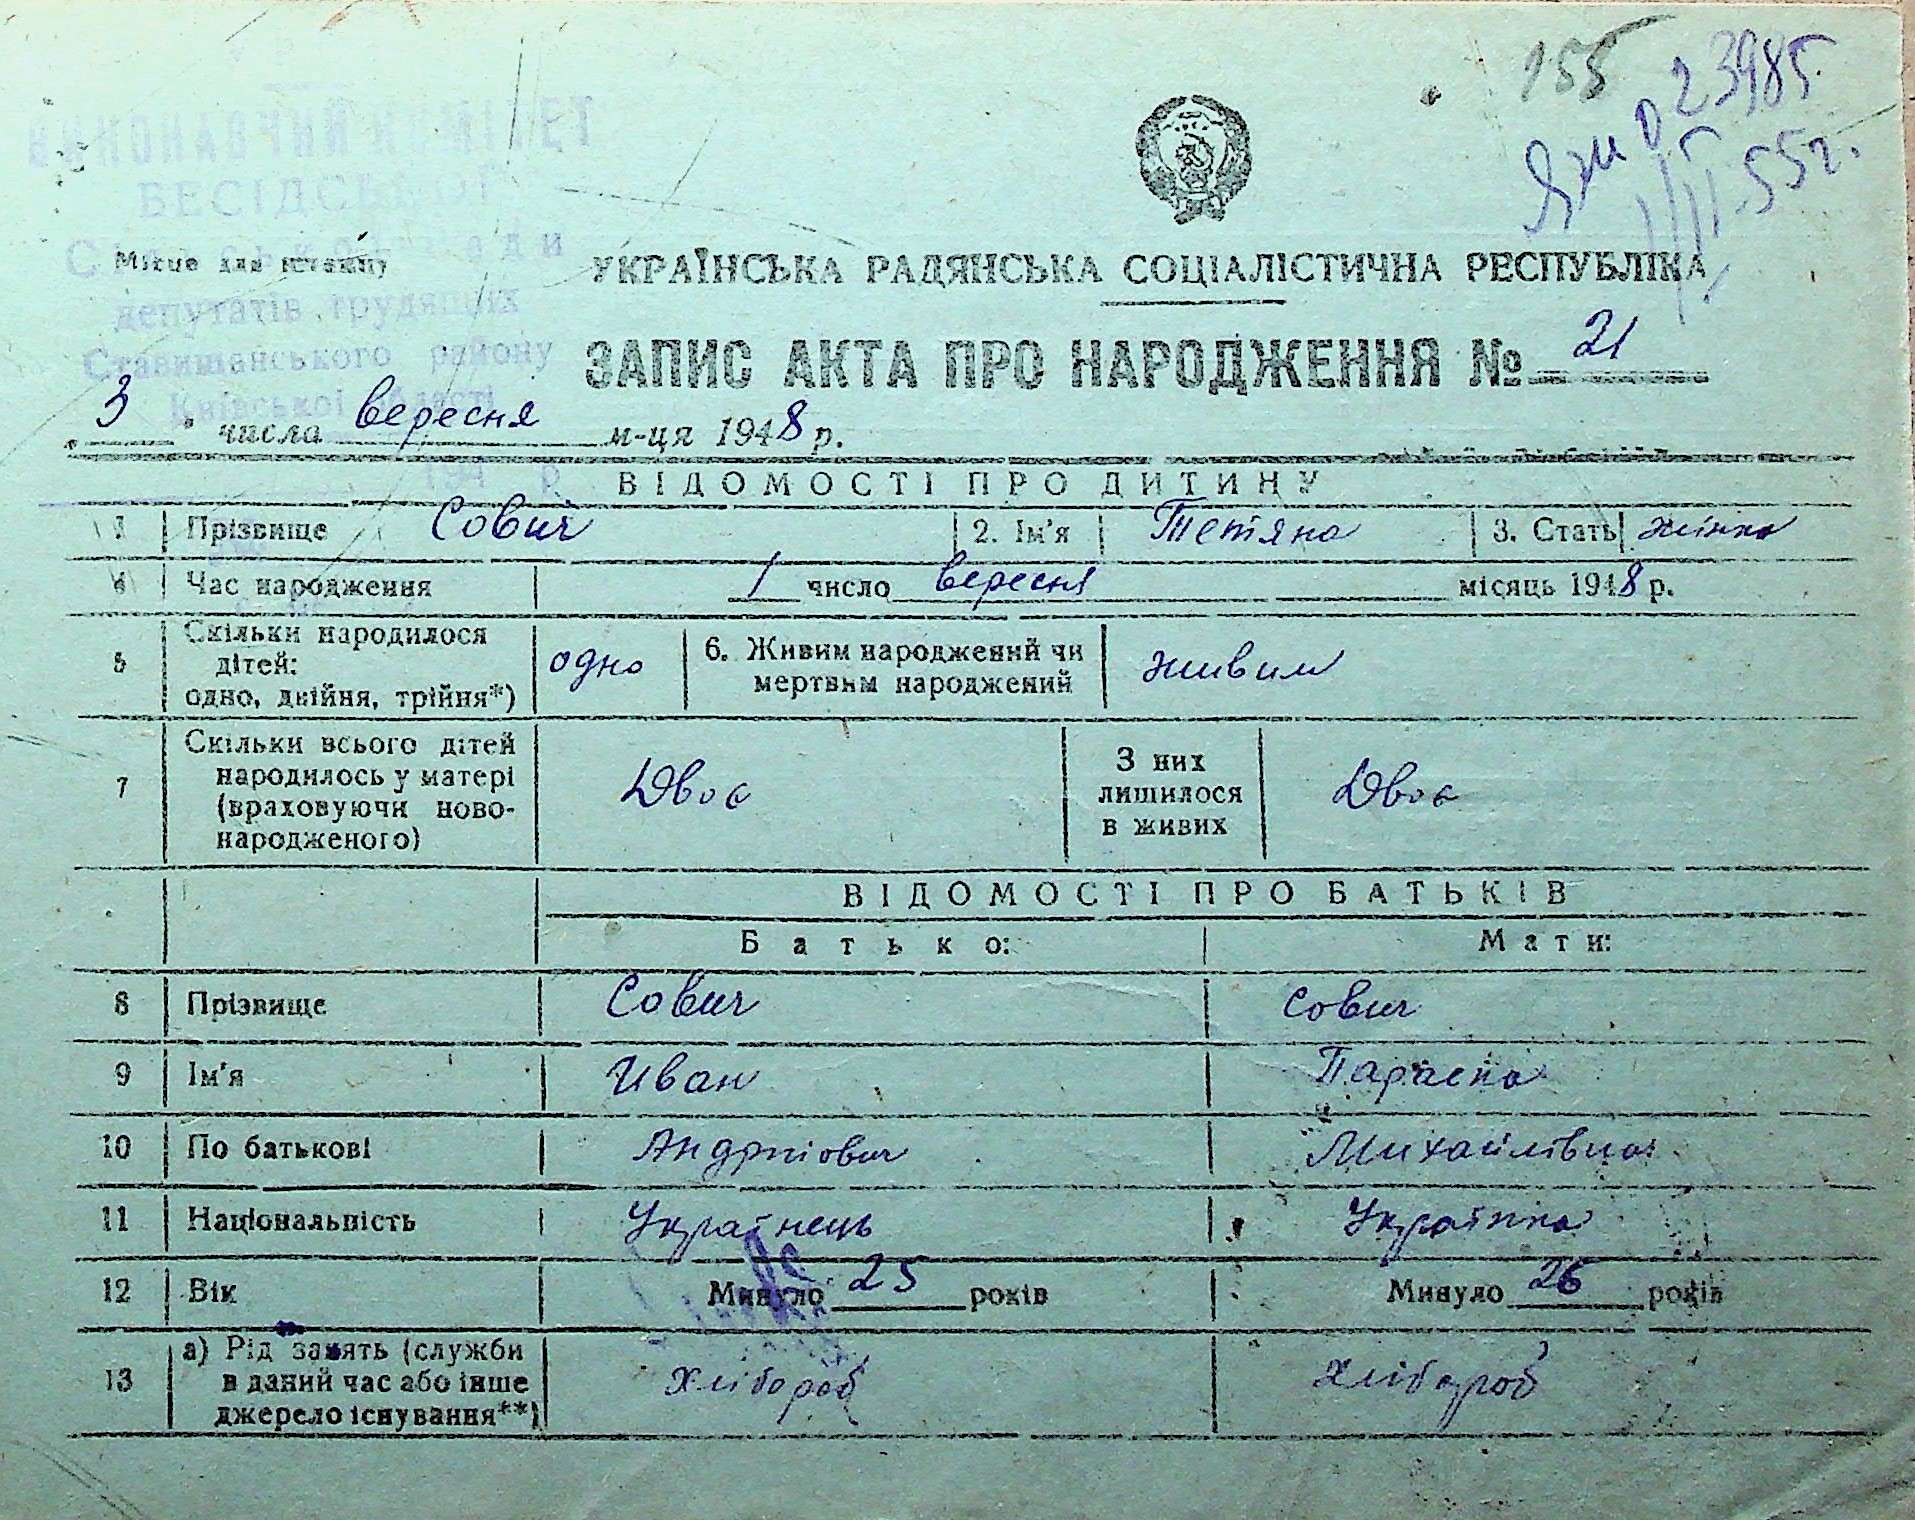 155
ЯЖ 023985
УРСР
ВИКОНАВЧИЙ КОМІТЕТ
БЕСІДСЬКОЇ
Сільської Ради
депутатів трудящих
Ставищанського району
Київської області
194 р
Місце для штампу
УКРАЇНСЬКА РАДЯНСЬКА СОЦІАЛІСТИЧНА РЕСПУБЛІКА
ЗАПИС АКТА ПРО НАРОДЖЕННЯ № 21
„3" числа вересня м-ця 1948 р.
ВІДОМОСТІ ПРО ДИТИНУ
1 Прізвище Сович 2. Ім'я Тетяна 3. Стать жінка
4 Час народження 1 число вересня місяць 1948 р.
5 Скільки народилося дітей: одно, двійня, трійня*) одно 6. Живим народжений чи мертвим народжений живим
7 Скільки всього дітей народилось у матері (враховуючи ново-народженого) Двоє З них лишилося в живих Двоє
ВІДОМОСТІ ПРО БАТЬКІВ
Батько: Мати:
8 Прізвище Сович Сович
9 Ім'я Иван Параска
10 По батькові Андріiович Михайлівна
11 Національність Українець Українка
12 Вік Минуло 25 років Минуло 26 років
13 а) Рід занять (служби в даний час або інше джерело існування**) Хлібороб Хлібороб